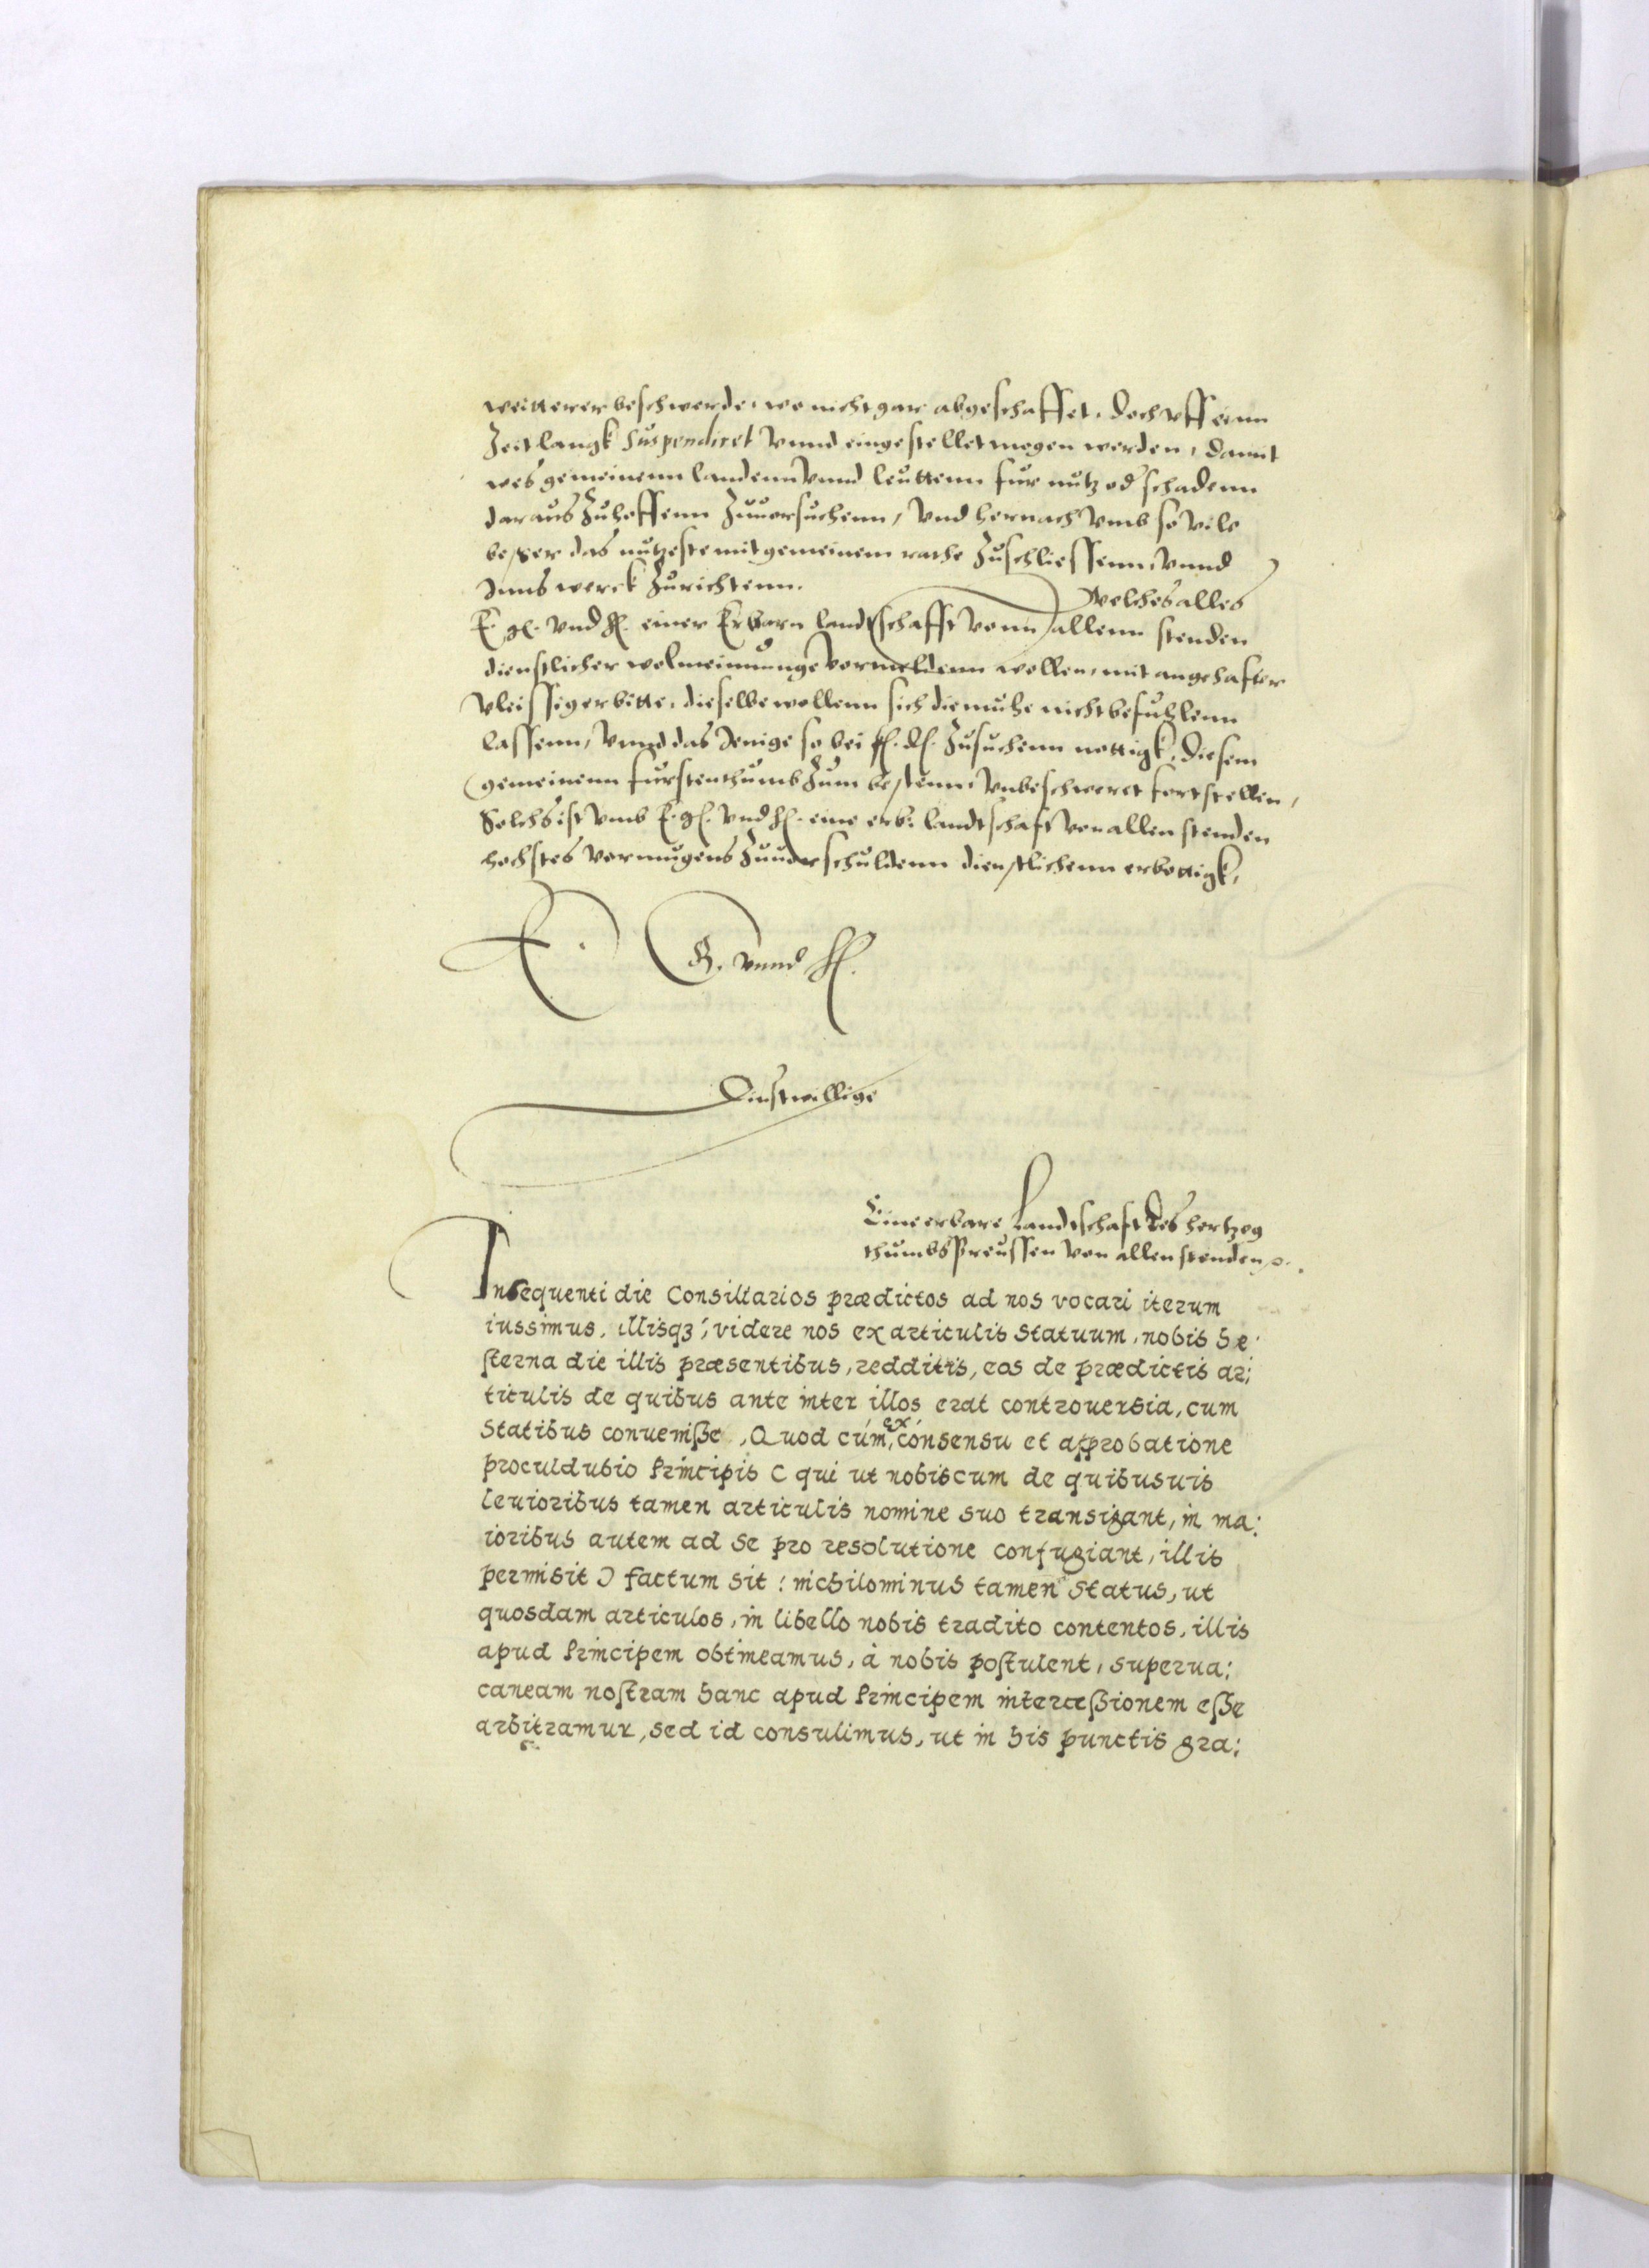 weitterer beschwerde, wo nicht gar abgeschaffet, doch vff einn
Zeit langk suspendiret vnnd eingestellet mogen werden, damit
wes gemeinenn landenn vnnd leuttenn fur nutz od schadenn
daraus Zuhoffenn Zuuorsuchenn, vnd hernach vmb so vile
besser das nutzeste mit gemeinem rathe Zuschliessenn, vnnd
Inns werck Zurichtenn. Welches alles
E. G. vnd H. einer Erbarn landtschafft vonn allenn stenden
dienstlicher wolmeinunge vormeldenn wollen, mit angehafter
vleissiger bitte, dieselbe wollenn sich die muhe nicht befuhlenn
lassenn, vnnd das Jenige so bei f. d. Zusuchenn nottigk, diesem
gemeinenn furstenthumb Zum bestenn, vnbeschweret fortstellen,
Solchs ist vmb E. G. vnd H. eine erb. landtschaft von allen stenden
hochstes vermugens Zuuorschuldenn dienstlichenn erbottigk,
E. G. vnnd H.
Dinstwillige
Eine erbare Landtschaft des hertzog
thumbs Preussen von allen stenden
Insequenti die Consiliarios prædictos ad nos vocari iterum
iussimus, illisq3, videre nos ex articulis Statuum, nobis he
sterna die illis præsentibus, redditis, eos de prædictis ar:
ticulis de quibus ante inter illos erat controuersia, cum
Statibus conuenisse, Quod cúm ex consensu et approbatione
proculdubio Principis ( qui ut nobiscum de quibusuis
leuioribus tamen articulis nomine suo transigant, in ma:
ioribus autem ad se pro resolutione confugiant, illis
permisit ) factum sit: nichilominus tamen Status, ut
quosdam articulos, in libello nobis tradito contentos, illis
apud Principem obtineamus, à nobis postulent, superua:
caneam nostram hanc apud Principem intercessionem esse
arbitramur, sed id consulimus, ut in his punctis gra: